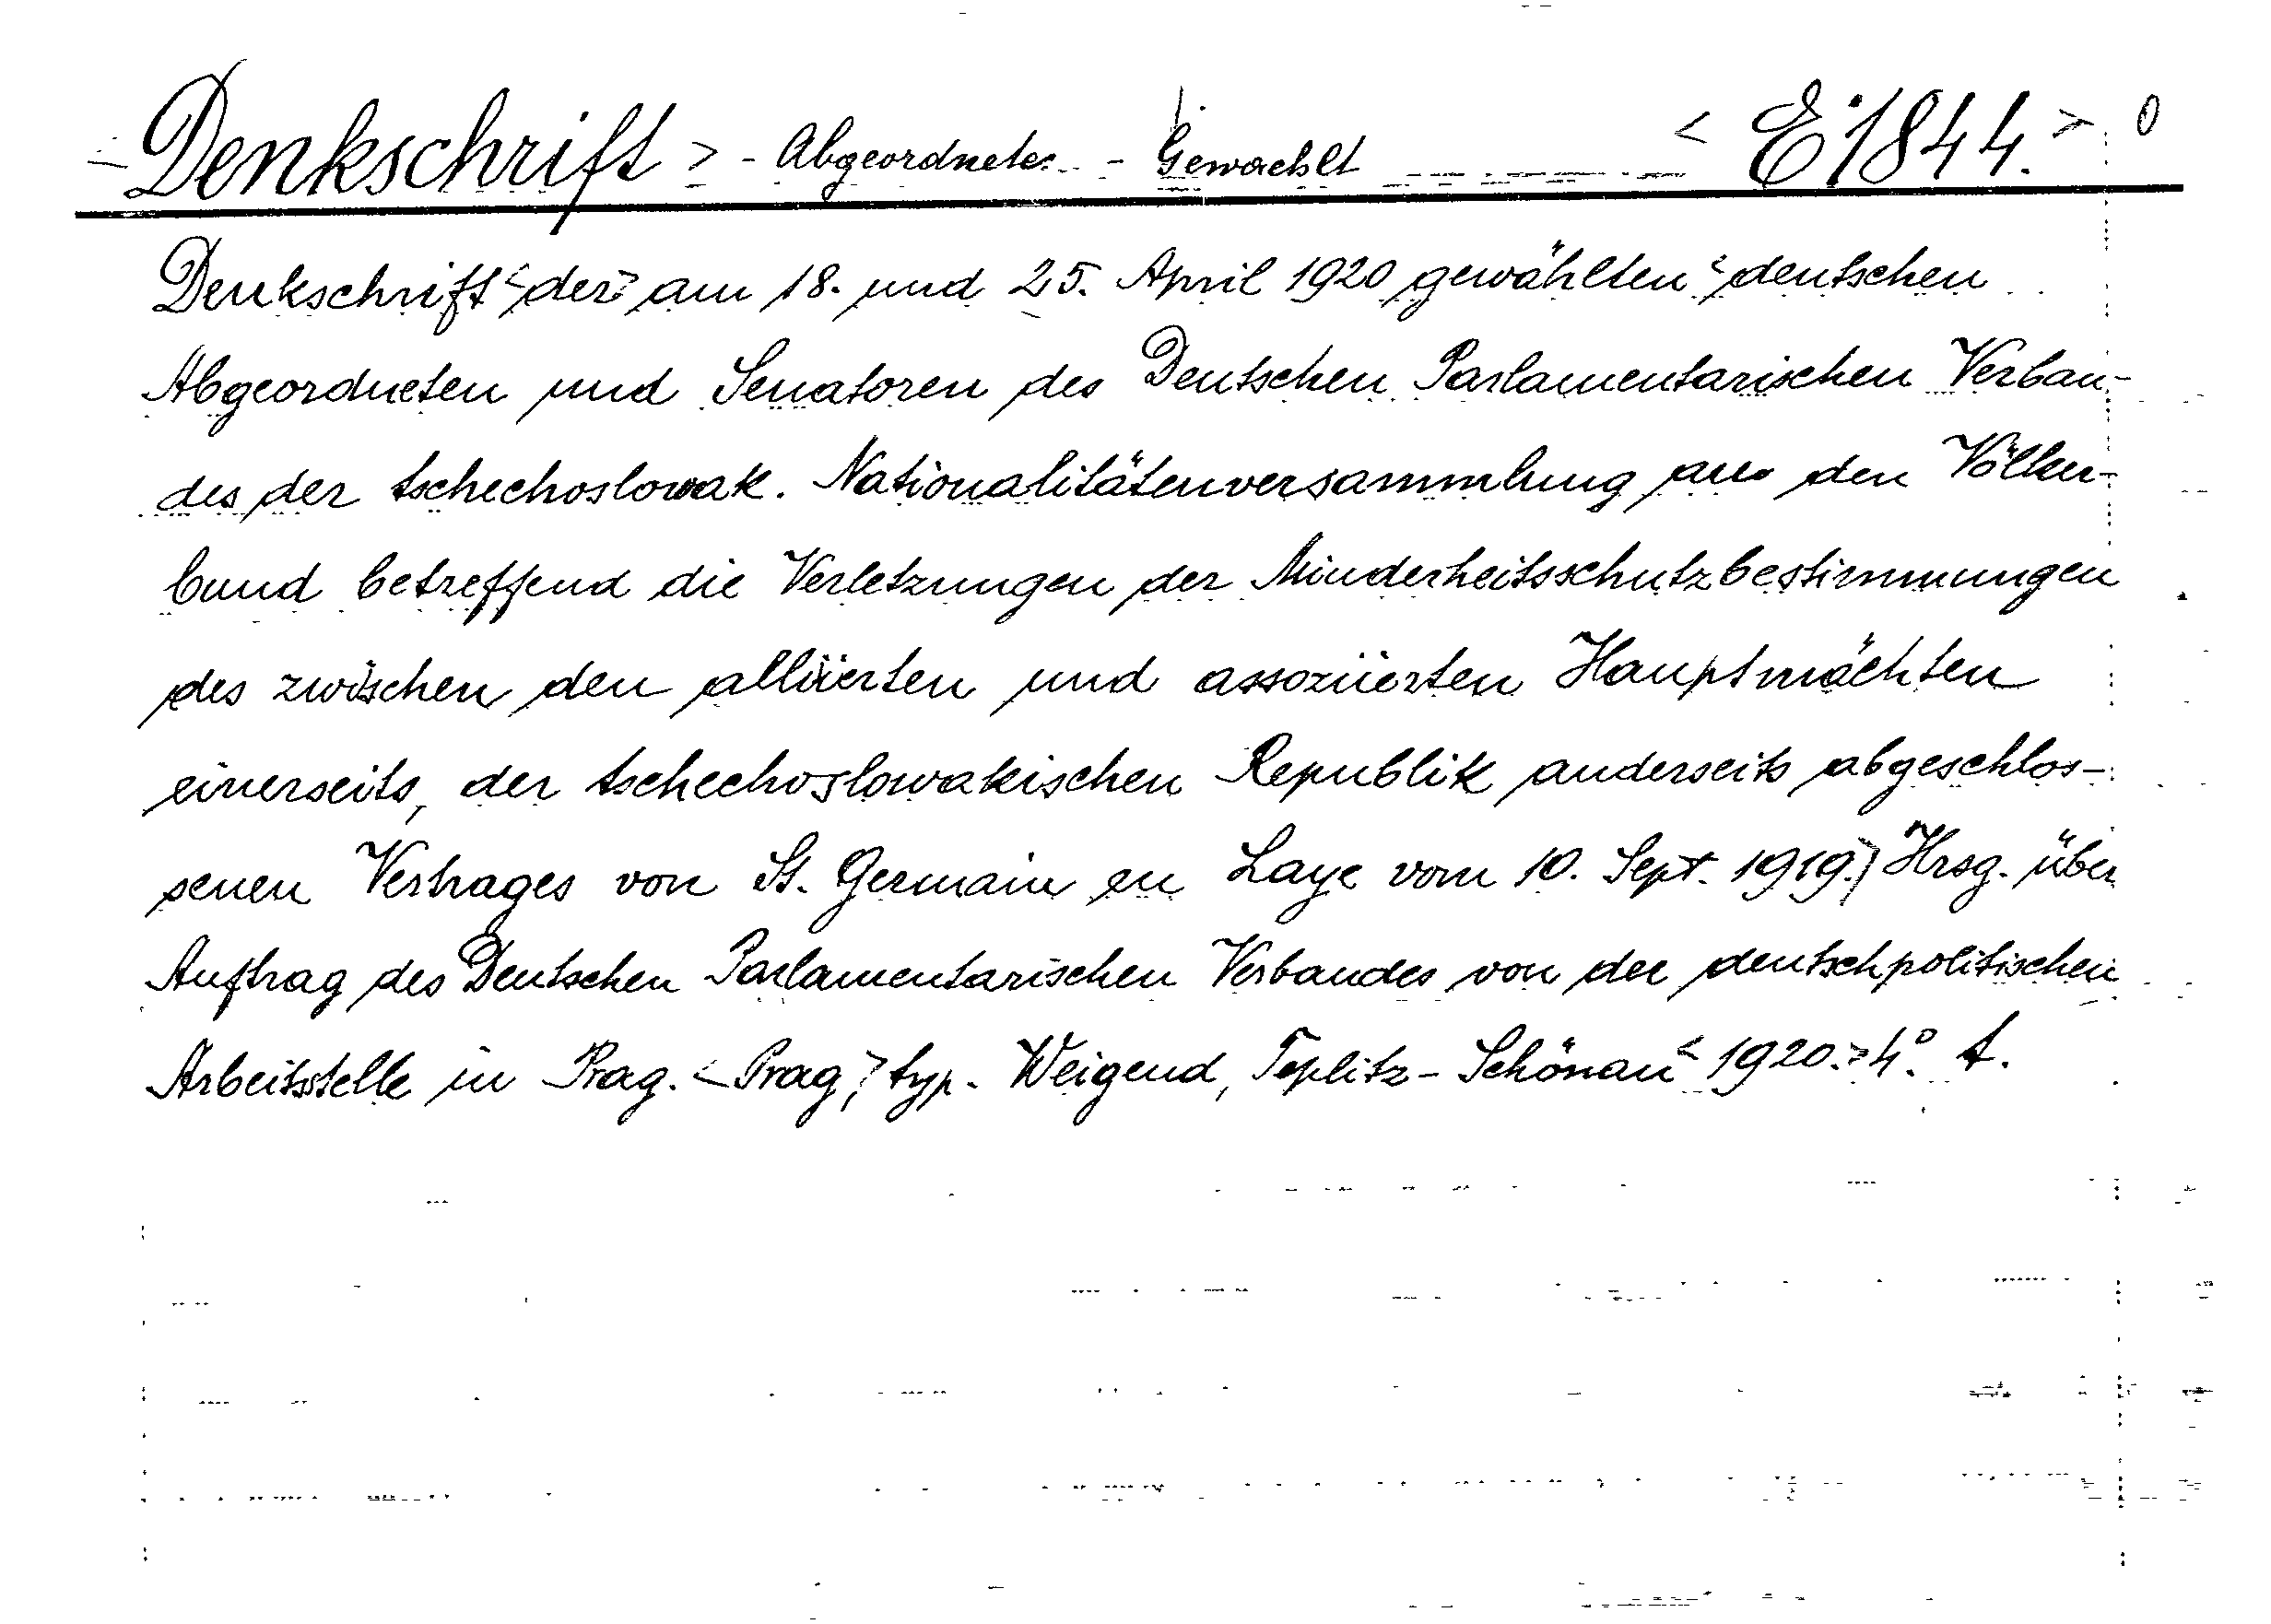 Denkschrift > - Abgeordneter - Gewaehlt < E 1844. > 0
Denkschrift < der > am 18. und 25. April 1920 gewählten < deutschen
Abgeordneten und Senatoren des Deutschen Parlamentarischen Verban-
des der tschechoslowak. Nationalitätenversammlung an den Völker-
bund betreffend die Verletzungen der Minderheitsschutzbestimmungen
des zwischen den alliierten und assoziierten Hauptmächten
einerseits, der tschechoslowakischen Republik anderseits abgeschlos-
senen Vertrages von St. Germain en Laye vom 10. Sept. 1919.) Hrsg. über
Auftrag des Deutschen Parlamentarischen Verbandes von der deutschpolitischen
Arbeitsstelle in Prag. < Prag, > typ. Weigend, Teplitz-Schönau < 1920. > 4°. A.